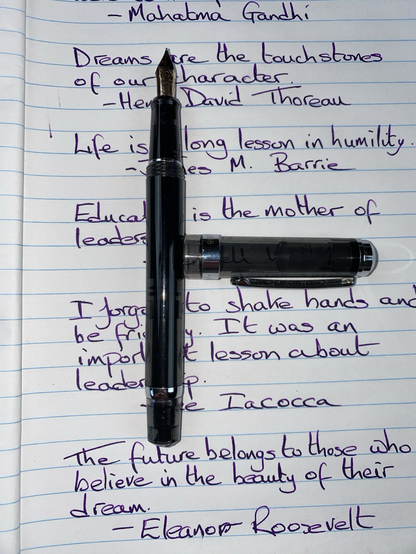 -Mahatma Gandhi
Dreams are the touchstones
of our character.
-Henry David Thoreau
Life is long lesson in humility.
M. Barrie
is the mother of
I to shake hands and
be. It was an
lesson about
Iacocca
The future belongs to those who
believe in the beauty of their
dream.
-Eleanor Roosevelt